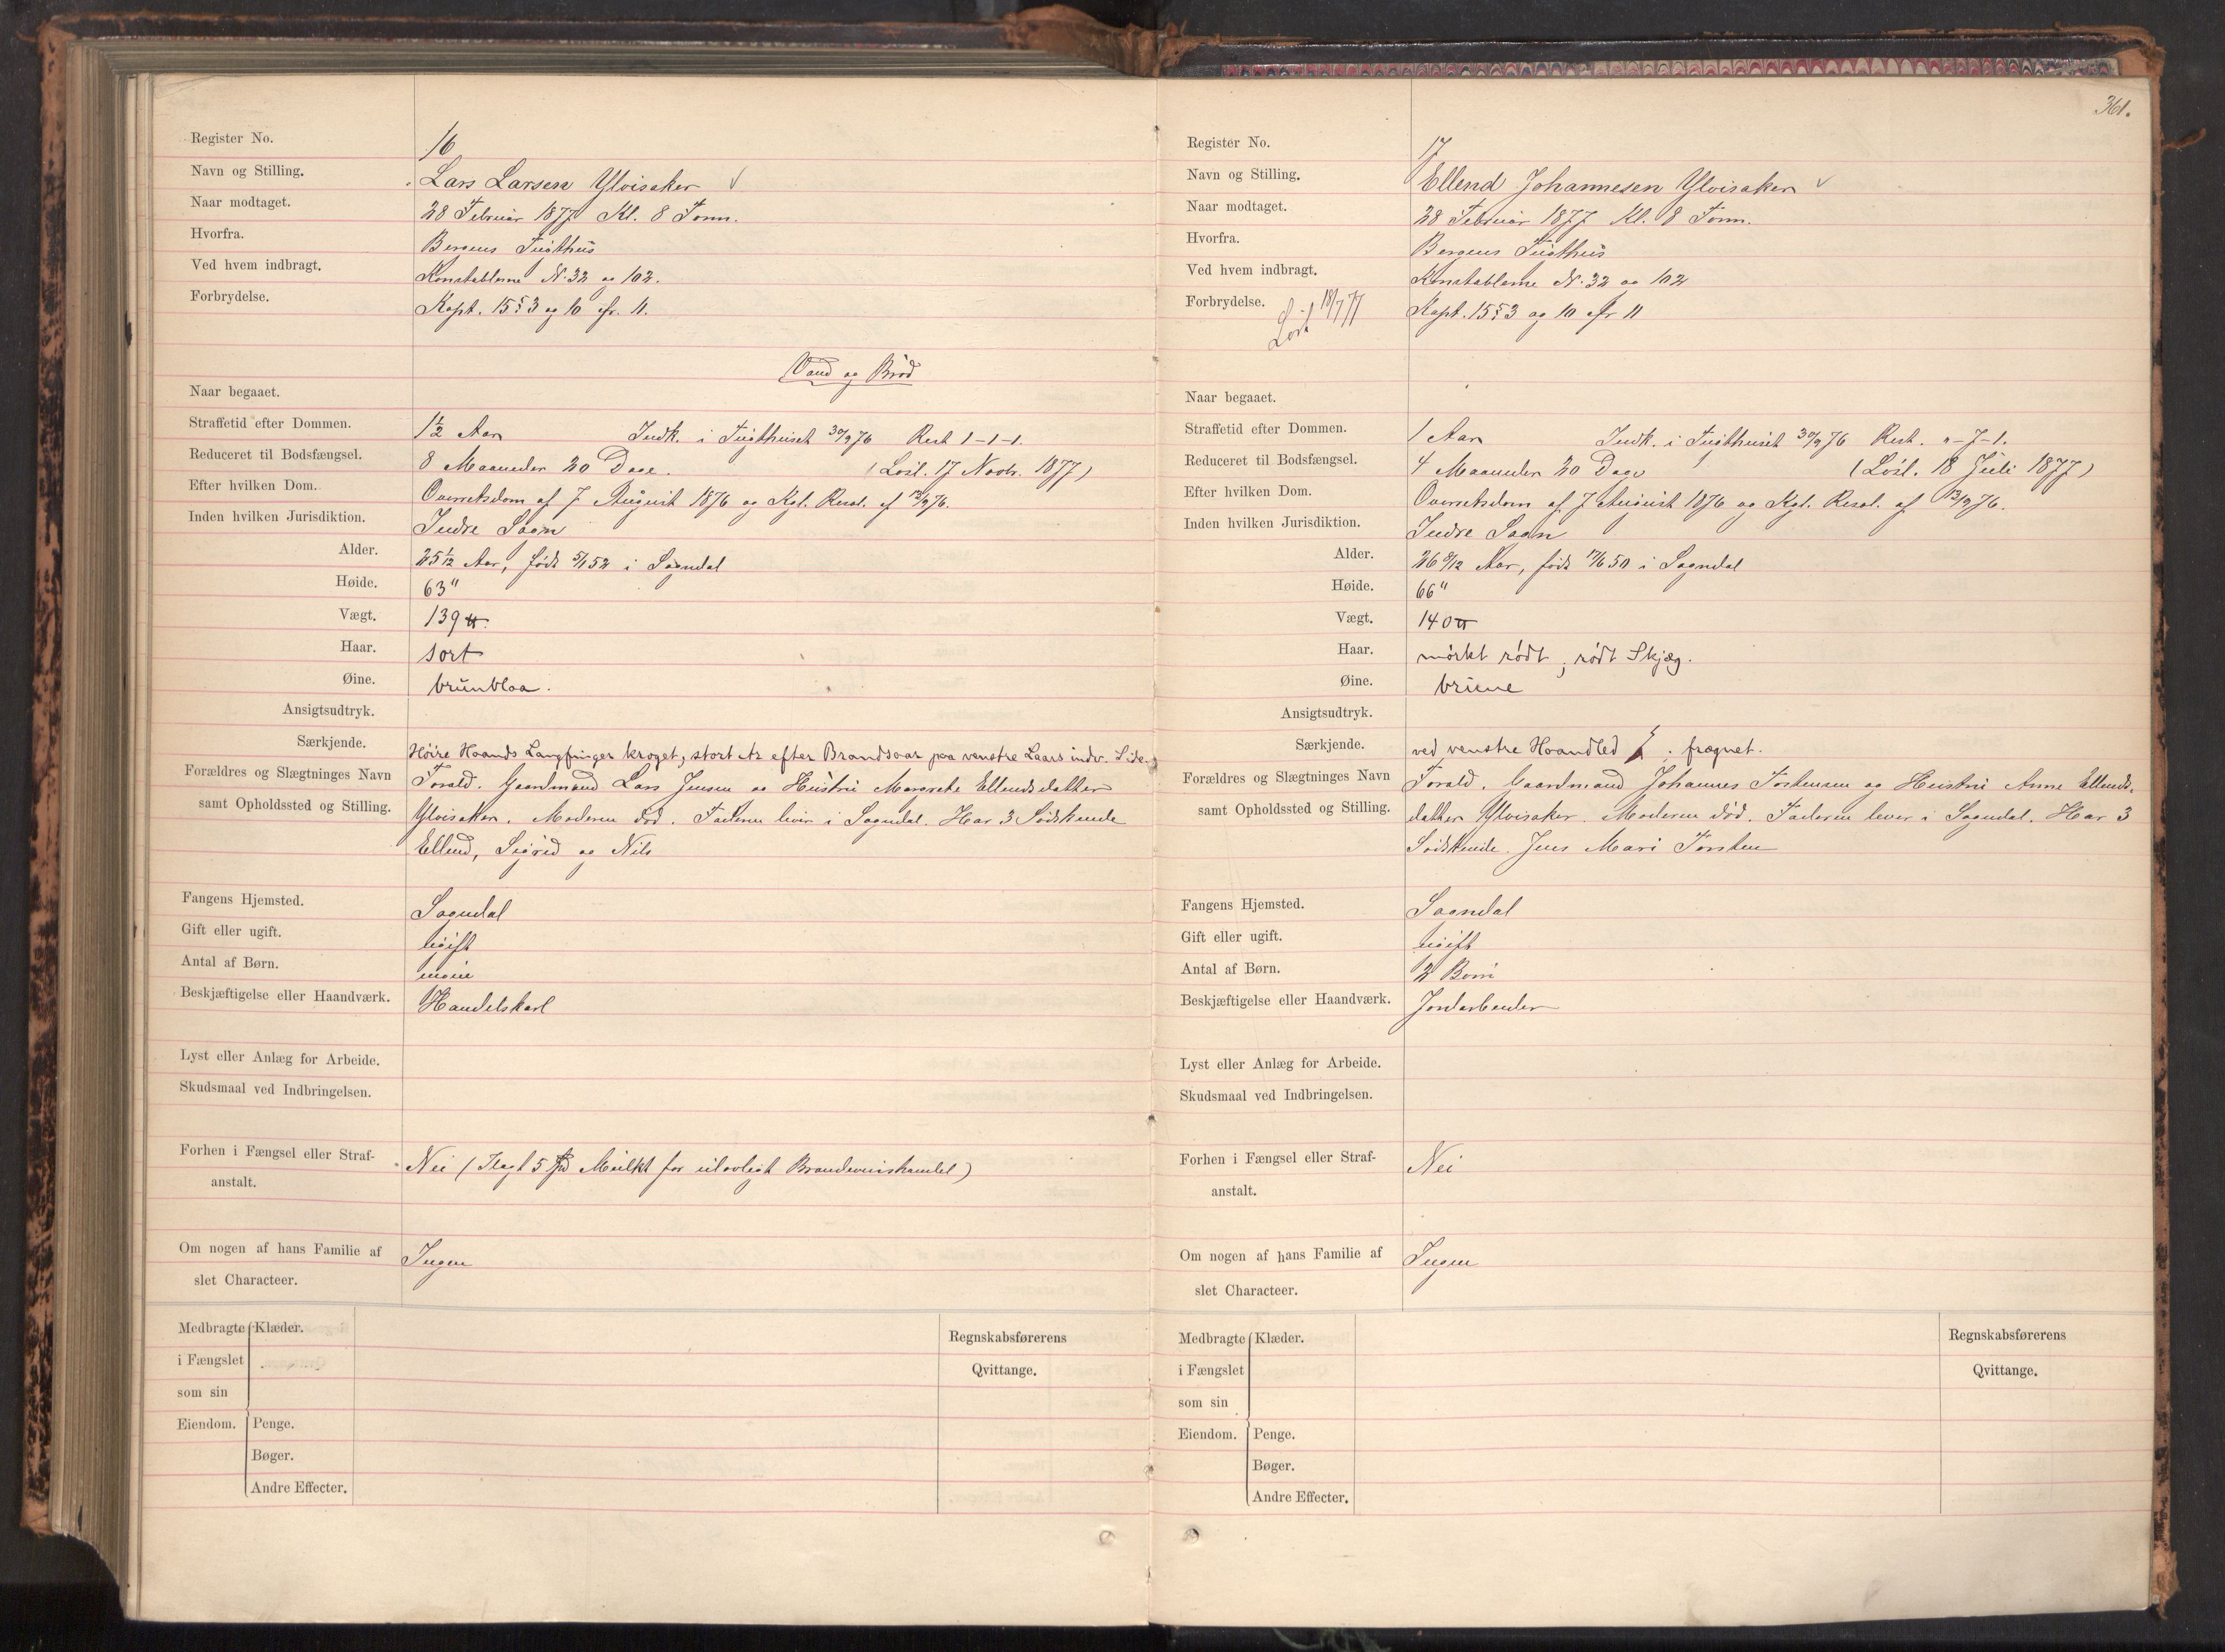 Register No. 16
Navn og Stilling. Lars Larsen Ylvisaker ✓
Naar modtaget. 28 Februar 1877 Kl. 8 Form.
Hvorfra. Bergens Tugthus
Ved hvem indbragt. Konstablerne N. 32 og 102.
Forbrydelse. Kapt. 15 § 3 og 10 cfr. 11.
Vand og Brød
Naar begaaet.
Straffetid efter Dommen. 1½ Aar Indk. i Tugthuset 30/9 76 Rest 1-1-1.
Reduceret til Bodsfængsel. 8 Maaneder 20 Dage. (Løsl. 17 Novbr. 1877)
Efter hvilken Dom. Overretsdom af 7 August 1876 og Kgl. Resol. af 13/9 76.
Inden hvilken Jurisdiktion. Indre Sogn
Alder. 25 1/12 Aar, født 5/1 52 i Sogndal
Høide. 63"
Vægt. 139 ℔.
Haar. sort
Øine. brunblaa.
Ansigtsudtryk.
Særkjende. Høire Haands Langfinger kroget, stort Ar efter Brandsaar paa venstre Laars indv. Side.
Forældres og Slægtninges Navn Foræld. Gaardmand Lars Jensen og Hustru Margrete Ellendsdatter
samt Opholdssted og Stilling. Ylvisaker. Moderen død. Faderen lever i Sogndal. Har 3 Sødskende
Ellend, Sigrid og Nils
Fangens Hjemsted. Sogndal
Gift eller ugift. Ugift
Antal af Børn. ingen
Beskjæftigelse eller Haandværk. Handelskarl
Lyst eller Anlæg for Arbeide.
Skudsmaal ved Indbringelsen.
Forhen i Fængsel eller Straf- Nei (Ilagt 5 Mulkt for ulovligt Brændevinshandel)
anstalt.
Om nogen af hans Familie af Ingen
slet Characteer.
Medbragte Klæder.
i Fængslet
som sin
Eiendom. Penge.
Bøger.
Andre Effecter.
Regnskabsførerens
Qvittange.
361.
Register No. 17
Navn og Stilling. Ellend Johannesen Ylvisaker ✓
Naar modtaget. 28 Februar 1877 Kl. 8 Form.
Hvorfra. Bergens Tugthus
Ved hvem indbragt. Konstablerne N. 32 og 102
Forbrydelse. Løsl 18/7 77 Kapt. 15 § 3 og 10 cfr 11
Naar begaaet.
Straffetid efter Dommen. 1 Aar Indk. i Tugthuset 30/9 76 Rest. "-7-1.
Reduceret til Bodsfængsel. 4 Maaneder 20 Dage (Løsl. 18 Juli 1877)
Efter hvilken Dom. Overretsdom af 7 August 1876 og Kgl. Resol. af 13/9 76.
Inden hvilken Jurisdiktion. Indre Sogn
Alder. 26 8/12 Aar, født 17/6 50 i Sogndal
Høide. 66"
Vægt. 140 ℔
Haar. mørkt rødt, rødt Skjæg.
Øine. brune
Ansigtsudtryk.
Særkjende. ved venstre Haandled fregnet.
Forældres og Slægtninges Navn Foræld. Gaardmand Johannes Torstensen og Hustru Anne Ellends-
samt Opholdssted og Stilling. datter Ylvisaker. Moderen død. Faderen lever i Sogndal. Har 3
Sødskende. Jens Mari Torsten
Fangens Hjemsted. Sogndal
Gift eller ugift. ugift
Antal af Børn. 2 Børn
Beskjæftigelse eller Haandværk. Jordarbeider
Lyst eller Anlæg for Arbeide.
Skudsmaal ved Indbringelsen.
Forhen i Fængsel eller Straf- Nei
anstalt.
Om nogen af hans Familie af Ingen
slet Characteer.
Medbragte Klæder.
i Fængslet
som sin
Eiendom. Penge.
Bøger.
Andre Effecter.
Regnskabsførerens
Qvittange.